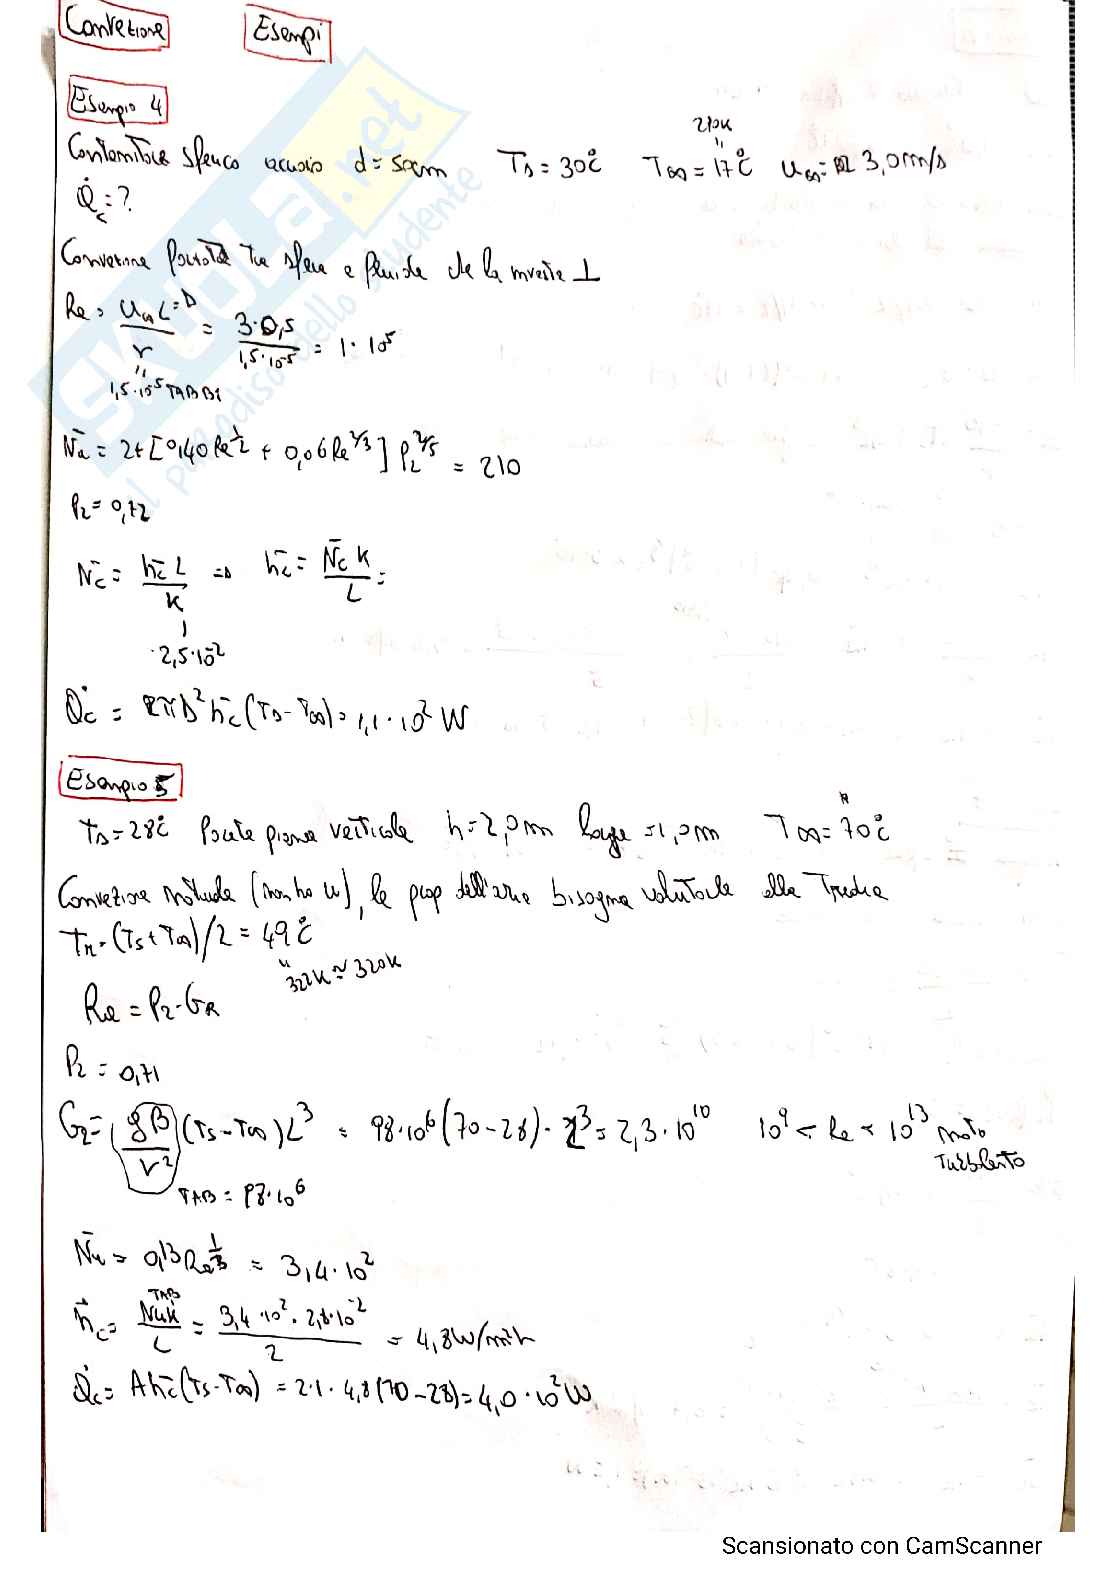 Convezione Esempi
Esempio 4
Contenitore sferico acciaio d=50cm Ts=30°C T∞=17°C u∞= 3,0m/s
210K
"
Q̇c=?
Convezione forzata tra sfera e fluido che la investe ⊥
Re = u∞L=D / ν = 3·0,5 / 1,5·10-5 = 1·10^5
"
1,5·10-5 TAB B1
N̄u = 2+[0,40Re^1/2 + 0,06Re^2/3] Pr^2/5 = 210
Pr=0,72
N̄c = h̄c L / k => h̄c = N̄c K / L =
2,5·10-2
Q̇c = πD²h̄c(Ts-T∞)=1,1·10² W
Esempio 5
Ts=28°C Parete piana verticale h=2,0m larga =1,0m T∞=70°C
Convezione naturale (non ho u), le prop dell'aria bisogna valutarle alla Tmedia
Tm=(Ts+T∞)/2=49°C
"
322K≈320K
Ra=Pr·GR
Pr=0,71
Gr=(gβ/ν²)(Ts-T∞)L³ = 98·10^6(70-28)·2³=2,3·10^10 10^9 < Ra < 10^13 moto
turbolento
TAB = 98·10^6
N̄u = 0,13Ra^1/3 = 3,4·10²
TAB
h̄c= Nuk / L = 3,4·10²·2,8·10-2 / 2 = 4,8W/m²k
Q̇c= Ah̄c(Ts-T∞) =2·1·4,8(70-28)=4,0·10²W
SKUOLA.net
il paradiso dello studente
Scansionato con CamScanner